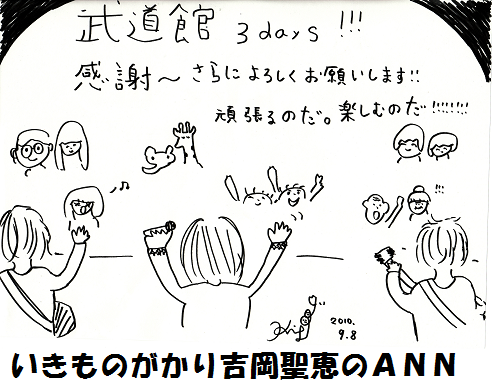 武道館 3days !!!
感謝～さらによろしくお願いします!!
頑張るのだ。楽しむのだ!!!!!!!!
!!!
2010.
9.8
いきものがかり吉岡聖恵のANN